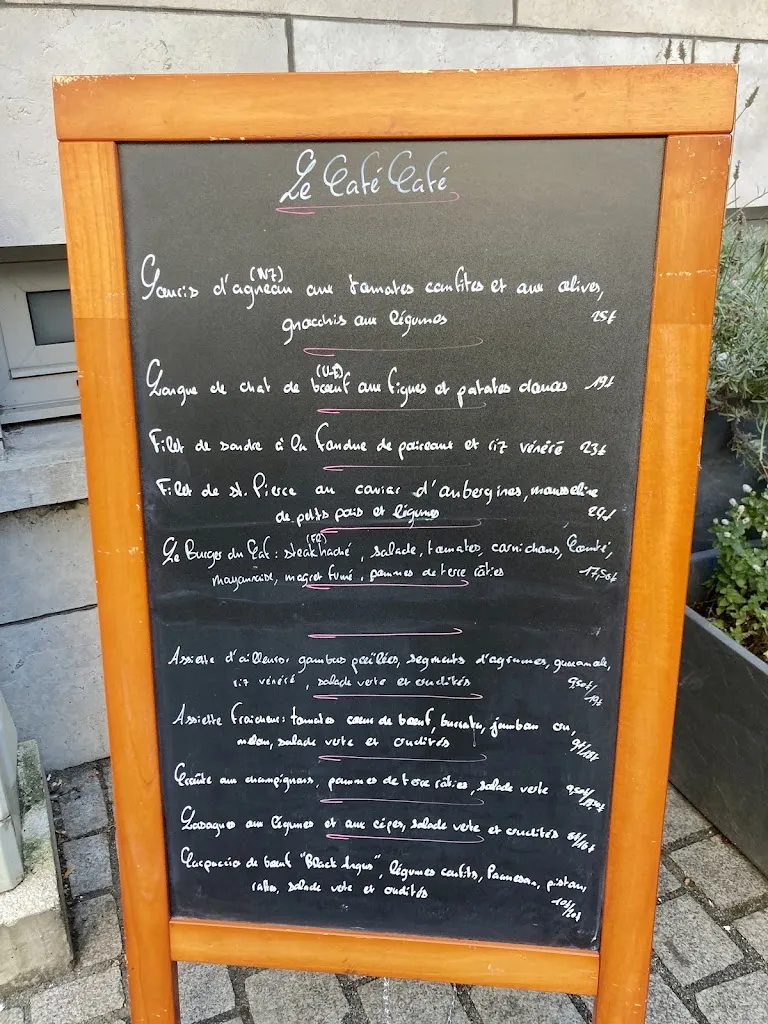 Le Café Café
(NZ)
Souris d'agneau aux tomates confites et aux olives,
gnocchis aux légumes 25€
(U.E)
Langue de chat de bœuf aux figues et patates douces 19€
Filet de sandre à la fondue de poireaux et riz vénéré 23€
Filet de St. Pierre au caviar d'aubergines, mousseline
de petits pois et légumes 24€
(FR)
Le Burger du Caf: steak haché, salade, tomates, cornichons, Comté,
mayonnaise, magret fumé, pommes de terre rôties 17,50€
Assiette d'ailleurs: gambas poêlées, segments d'agrumes, guacamole,
riz vénéré, salade verte et crudités 9,50€/19€
Assiette fraîcheur: tomates cœur de bœuf, burrata, jambon cru,
melon, salade verte et crudités 9€/18€
Croûte aux champignons, pommes de terre rôties, salade verte
Lasagnes aux légumes et aux cèpes, salade verte et crudités 8€/16€
Carpaccio de bœuf "Black Angus", légumes confits, Parmesan, pistou,
salade verte et crudités 10€/20€